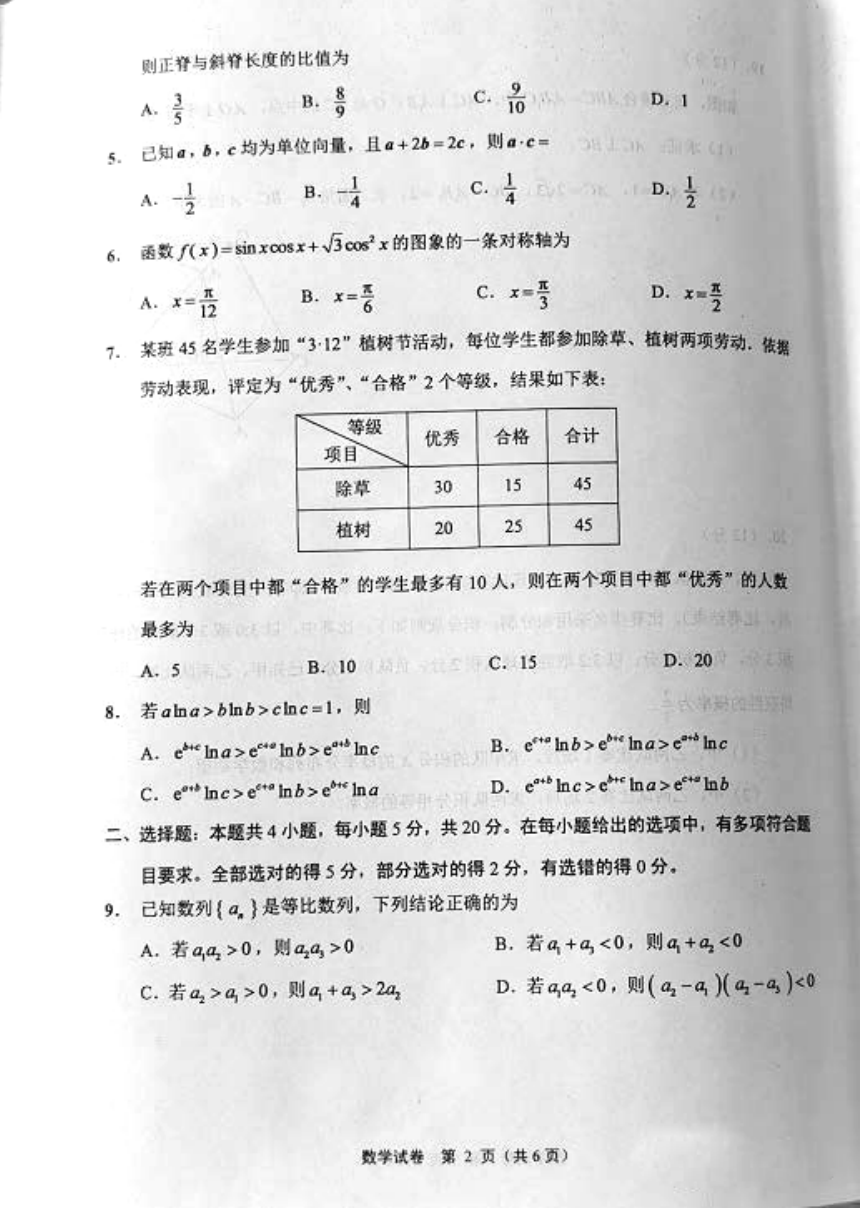 则正脊与斜脊长度的比值为
A. 3/5 B. 8/9 C. 9/10 D. 1
5. 已知a,b,c均为单位向量,且a+2b=2c,则a·c=
A. -1/2 B. -1/4 C. 1/4 D. 1/2
6. 函数f(x)=sinxcosx+√3cos²x的图象的一条对称轴为
A. x=π/12 B. x=π/6 C. x=π/3 D. x=π/2
7. 某班45名学生参加“3·12”植树节活动,每位学生都参加除草、植树两项劳动.依据
劳动表现,评定为“优秀”、“合格”2个等级,结果如下表:
等级
项目 优秀 合格 合计
除草 30 15 45
植树 20 25 45
若在两个项目中都“合格”的学生最多有10人,则在两个项目中都“优秀”的人数
最多为
A. 5 B. 10 C. 15 D. 20
8. 若alna>blnb>clnc=1,则
A. e^(b+c)lna>e^(c+a)lnb>e^(a+b)lnc B. e^(c+a)lnb>e^(b+c)lna>e^(a+b)lnc
C. e^(a+b)lnc>e^(c+a)lnb>e^(b+c)lna D. e^(a+b)lnc>e^(b+c)lna>e^(c+a)lnb
二、选择题:本题共4小题,每小题5分,共20分。在每小题给出的选项中,有多项符合题
目要求。全部选对的得5分,部分选对的得2分,有选错的得0分。
9. 已知数列{aₙ}是等比数列,下列结论正确的为
A. 若a₁a₂>0,则a₂a₃>0 B. 若a₁+a₃<0,则a₁+a₂<0
C. 若a₂>a₁>0,则a₁+a₃>2a₂ D. 若a₁a₂<0,则(a₂-a₁)(a₂-a₃)<0
数学试卷 第 2 页(共6页)